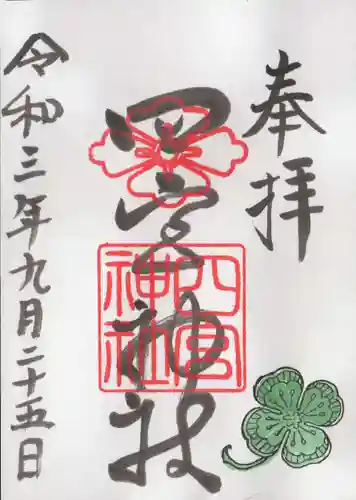 奉拝
四宮神社
四宮
神社
令和三年九月二十五日